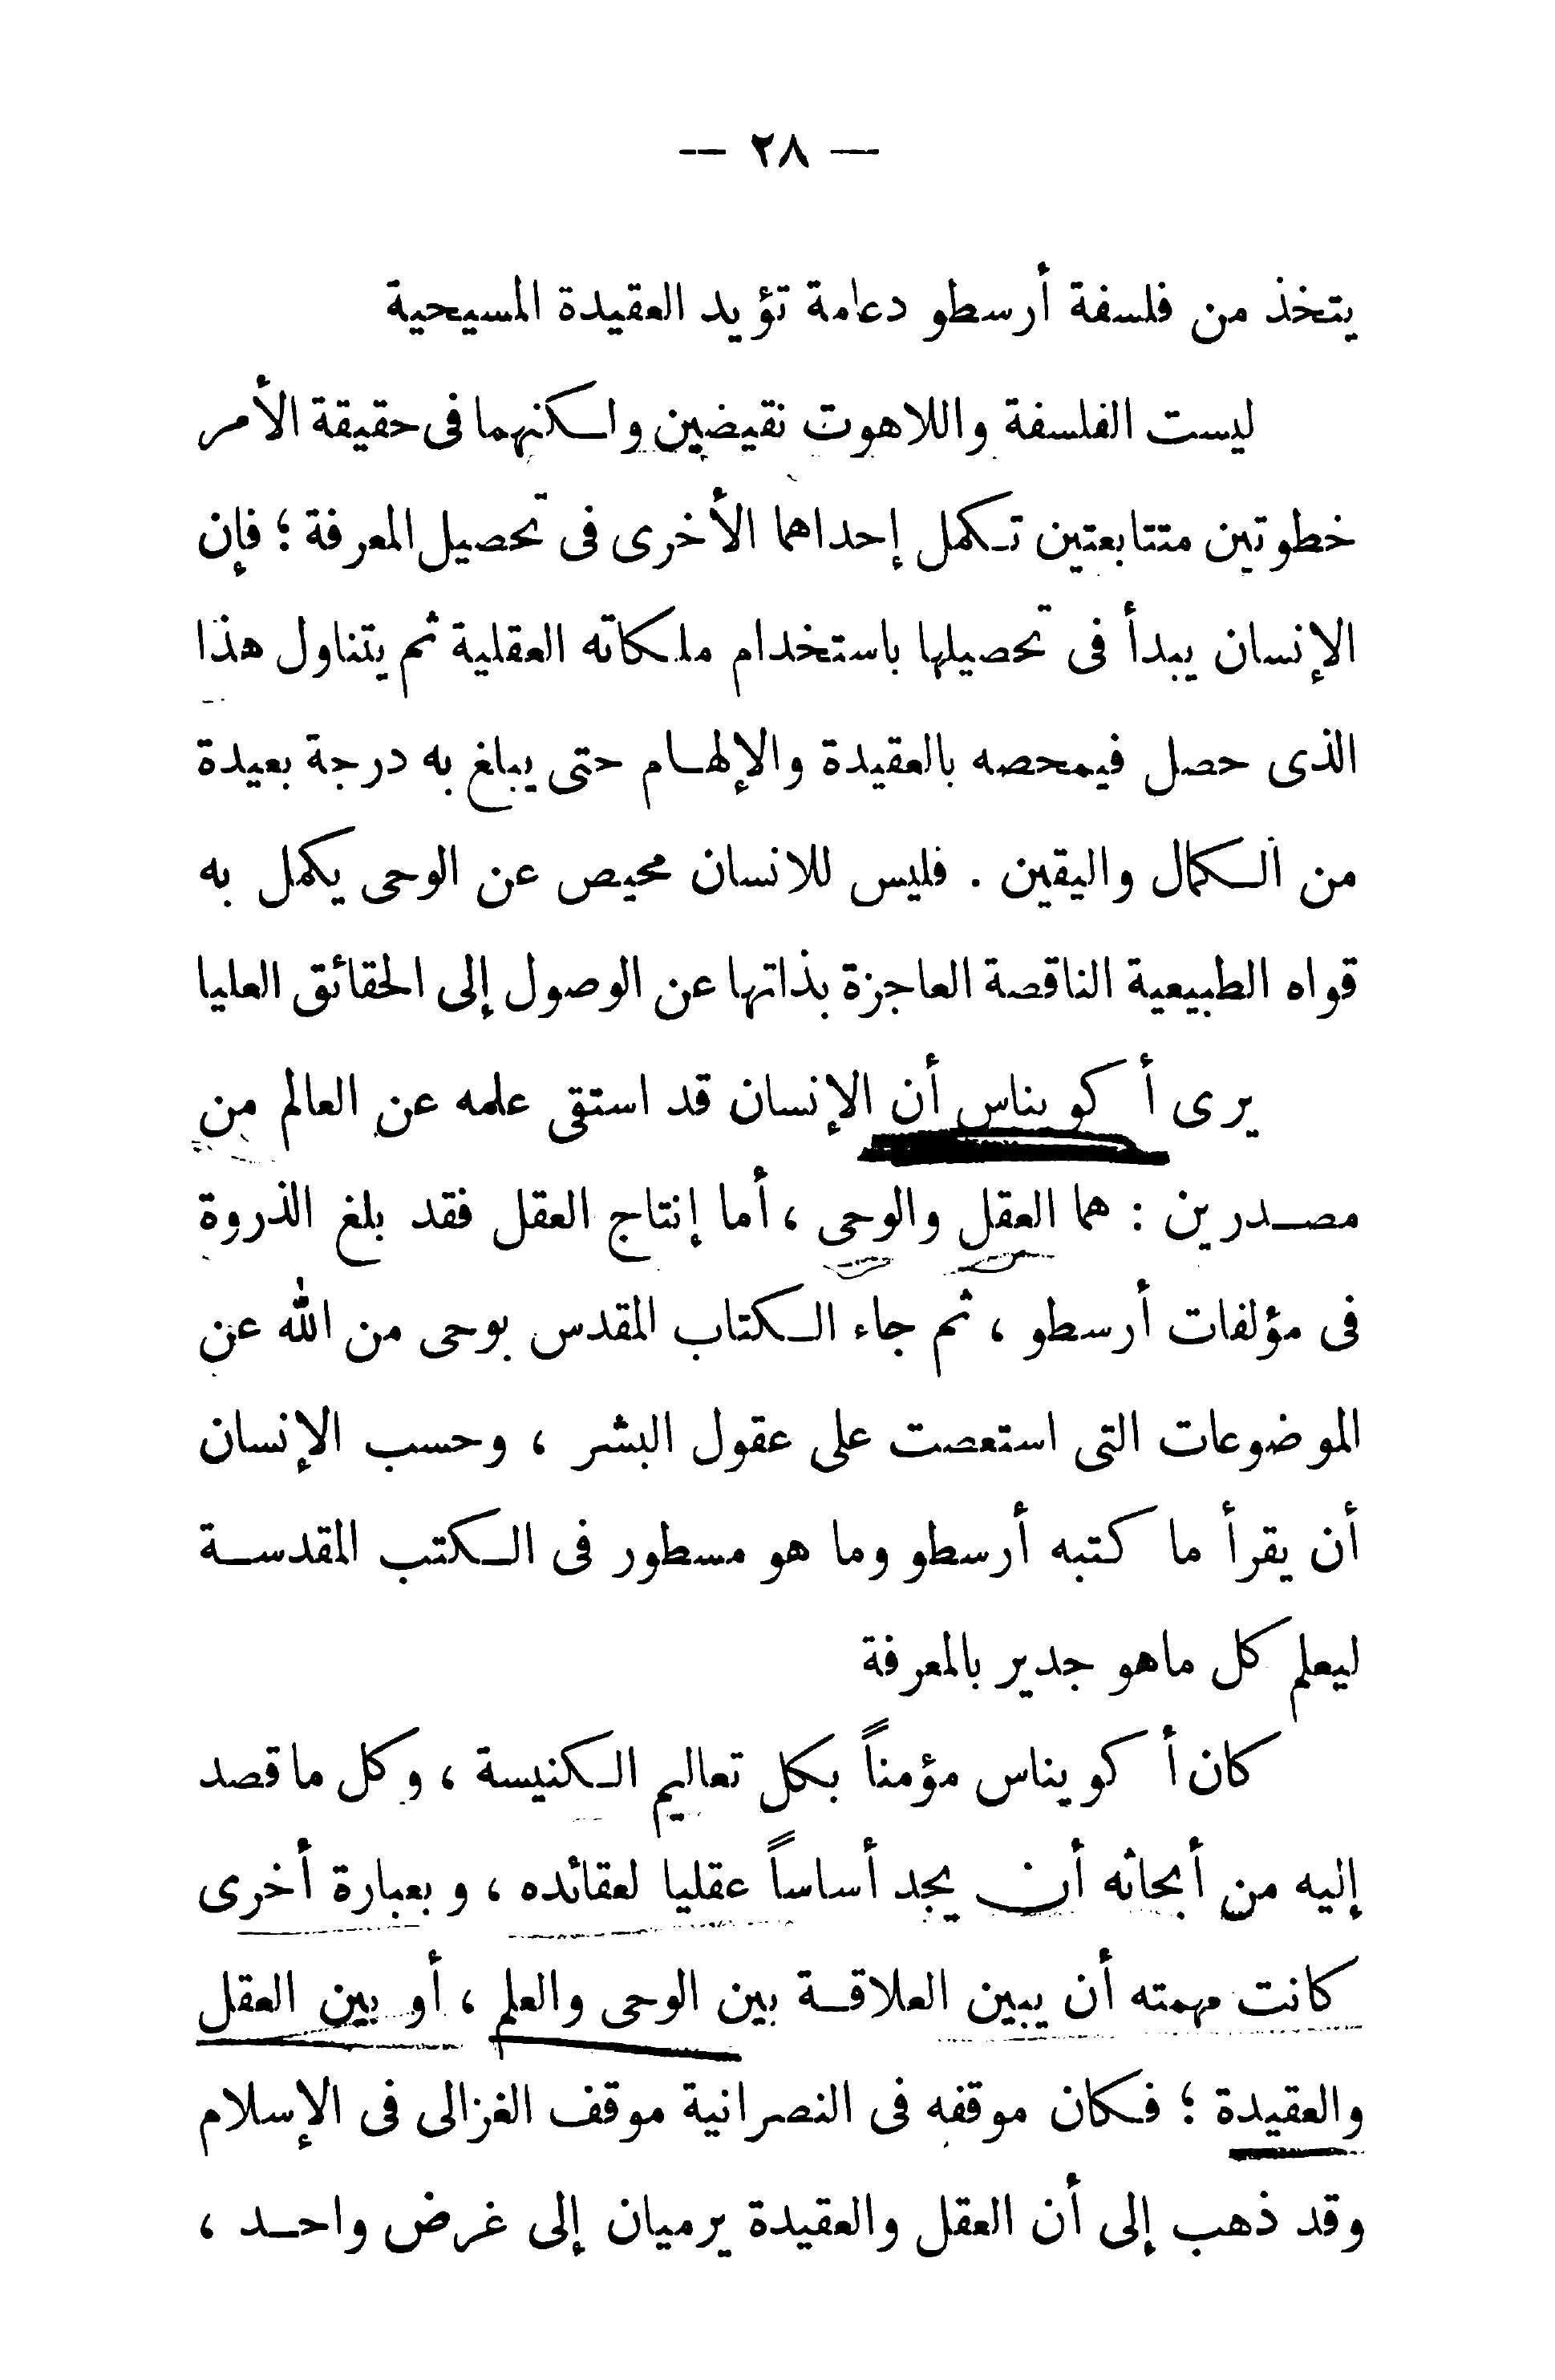 — ٢٨ —
يتخذ من فلسفة أرسطو دعامة تؤيد العقيدة المسيحية
ليست الفلسفة واللاهوت نقيضين ولكنهما فى حقيقة الأمر
خطوتين متتابعتين تكمل إحداهما الأخرى فى تحصيل المعرفة ؛ فإن
الإنسان يبدأ فى تحصيلها باستخدام ملكاته العقلية ثم يتناول هذا
الذى حصل فيمحصه بالعقيدة والإلهام حتى يبلغ به درجة بعيدة
من الكمال واليقين . فليس للانسان محيص عن الوحى يكمل به
قواه الطبيعية الناقصة العاجزة بذاتها عن الوصول إلى الحقائق العليا
يرى أكويناس أن الإنسان قد استقى علمه عن العالم من
مصدرين : هما العقل والوحى ، أما إنتاج العقل فقد بلغ الذروة
فى مؤلفات أرسطو ، ثم جاء الكتاب المقدس بوحى من الله عن
الموضوعات التى استعصت على عقول البشر ، وحسب الإنسان
أن يقرأ ما كتبه أرسطو وما هو مسطور فى الكتب المقدسة
ليعلم كل ماهو جدير بالمعرفة
كان أكويناس مؤمناً بكل تعاليم الكنيسة ، وكل ما قصد
إليه من أبحاثه أن يجد أساساً عقليا لعقائده ، وبعبارة أخرى
كانت مهمته أن يبين العلاقة بين الوحى والعلم ، أو بين العقل
والعقيدة ؛ فكان موقفه فى النصرانية موقف الغزالى فى الإسلام
وقد ذهب إلى أن العقل والعقيدة يرميان إلى غرض واحد ،